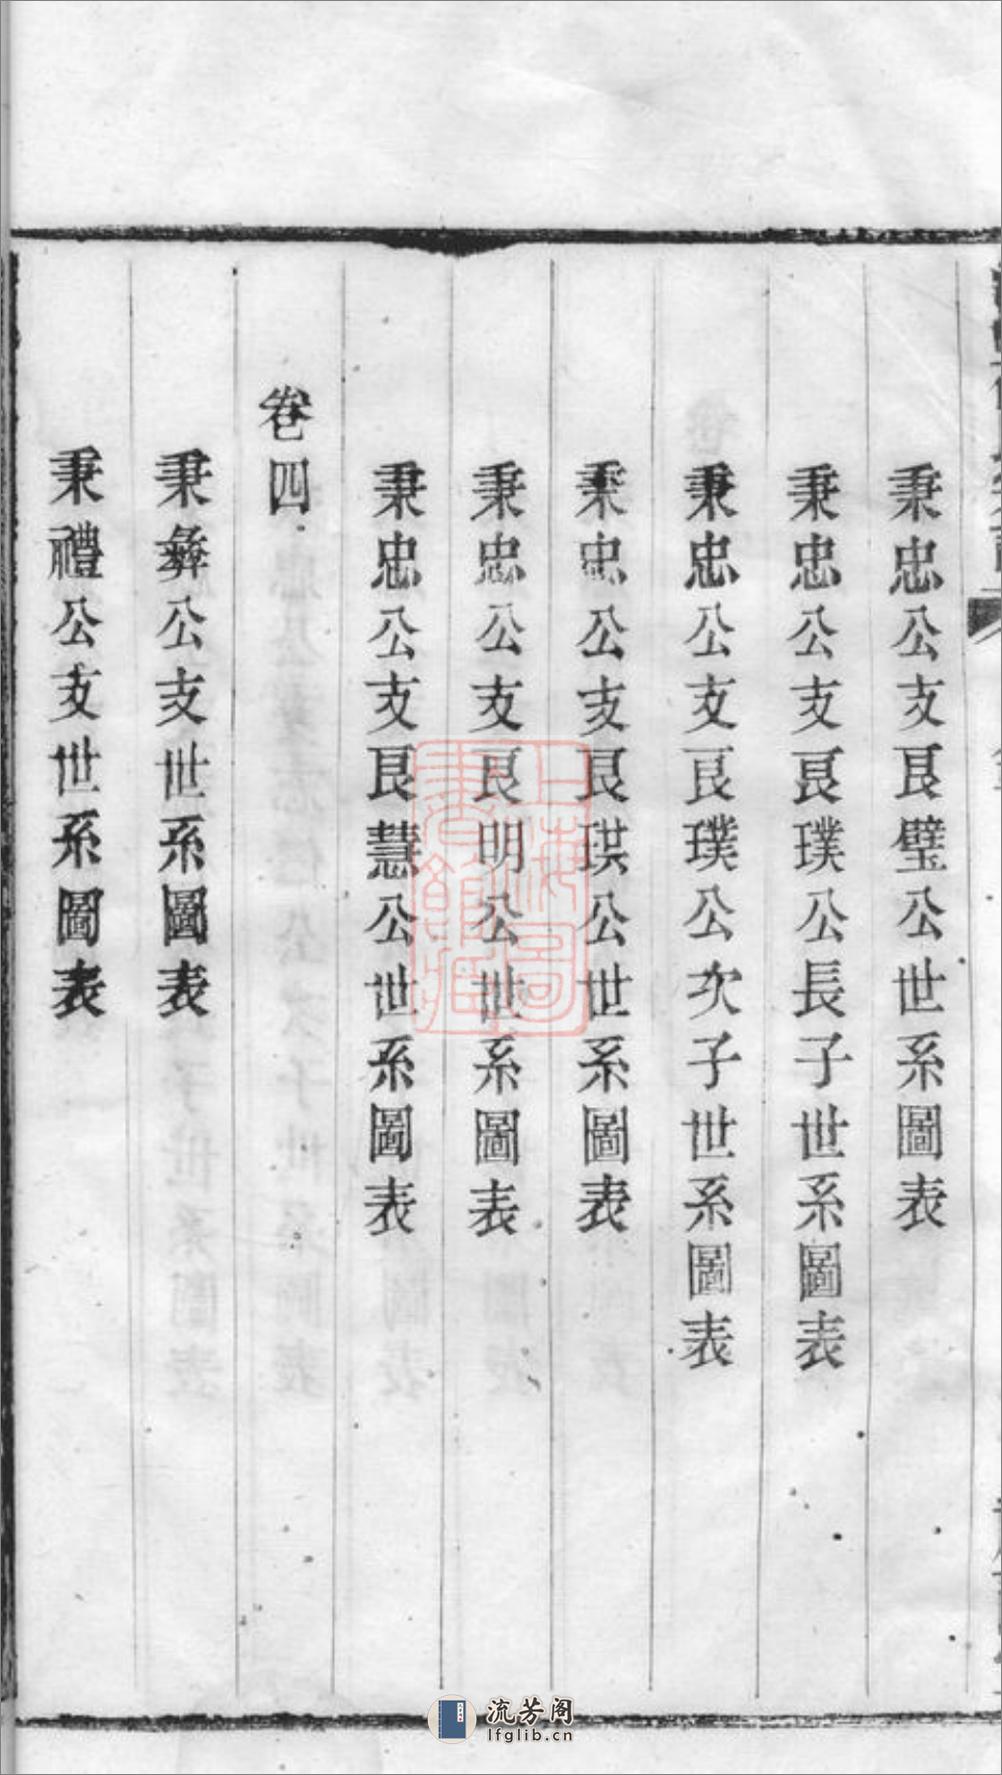 秉忠公支艮璧公世系圖表
秉忠公支艮璞公長子世系圖表
秉忠公支艮璞公次子世系圖表
秉忠公支艮琪公世系圖表
秉忠公支艮明公世系圖表
秉忠公支艮慧公世系圖表
卷四
秉彝公支世系圖表
秉禮公支世系圖表
上海圖書館藏
流芳阁
lfglib.cn